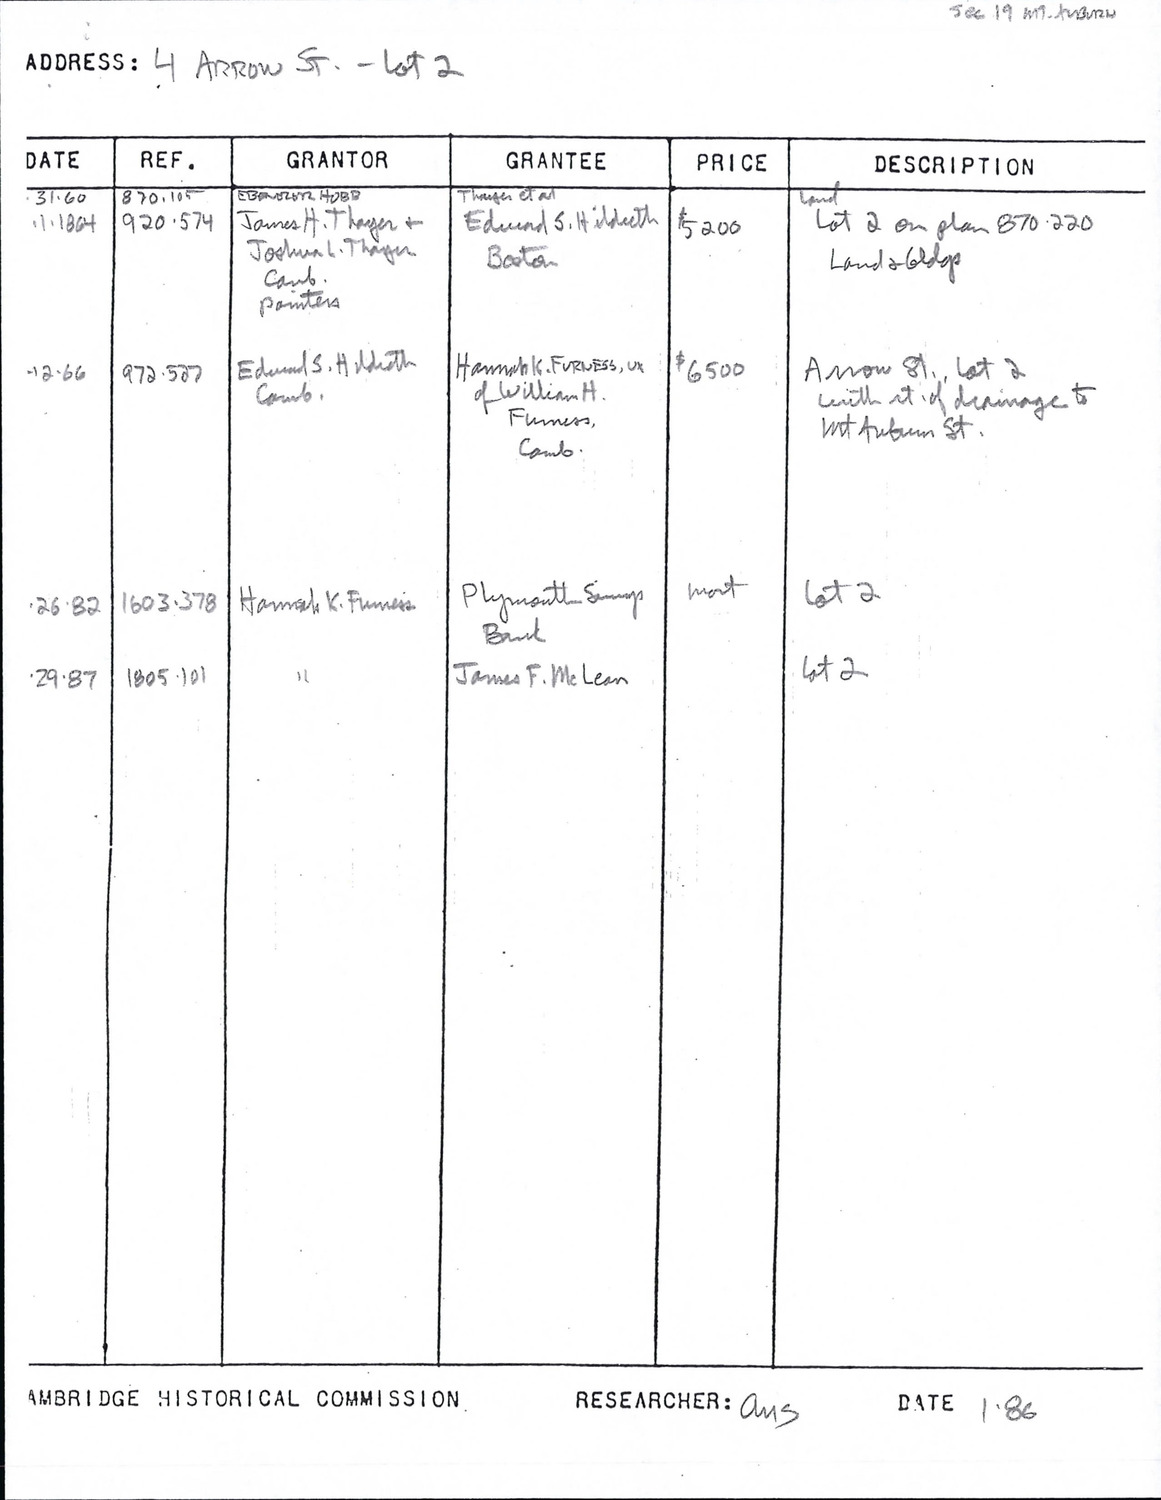 Sec 19 Mt. Auburn
ADDRESS: 4 ARROW ST. - Lot 2
DATE REF. GRANTOR GRANTEE PRICE DESCRIPTION
31.60 870.105 EBENEZER HOBB Thayer et al Land
1.1864 920.574 James H. Thayer + Edward S. Hildreth $5200 Lot 2 on plan 870.220
Joshua L. Thayer Boston Land & bldgs
Camb.
painters
12.66 972.527 Edward S. Hildreth Hannah K. FURNESS, ux $6500 Arrow St., Lot 2
Camb. of William H. with rt. of drainage to
Furness, Mt Auburn St.
Camb.
.26.82 1603.378 Hannah K. Furness Plymouth Savings mort Lot 2
Bank
.29.87 1805.101 " James F. McLean Lot 2
AMBRIDGE HISTORICAL COMMISSION RESEARCHER: DATE 1.86